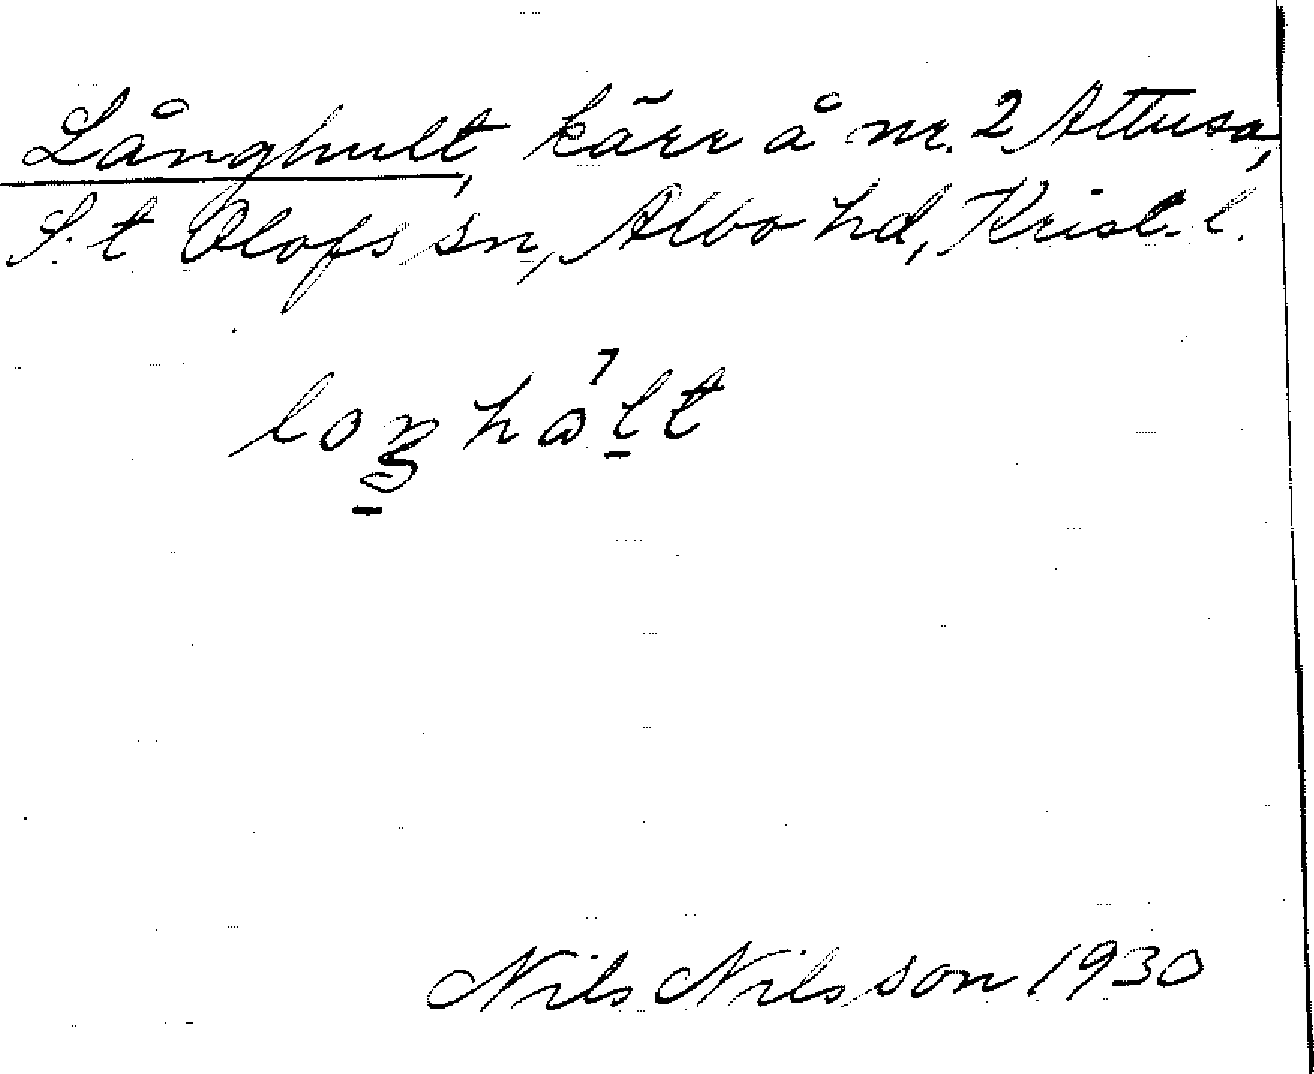 Långhult, kärr å nr. 2 Attusa,
S:t Olofs sn, Albo hd, Krist. l.
Nils Nilsson 1930